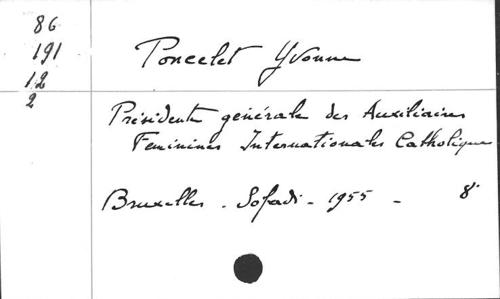 86
191
12
2
Poncelet Yvonne
Présidente générale des Auxiliaires
Feminines Internationales Catholique
Bruxelles - Sofadi - 1955 - 8°